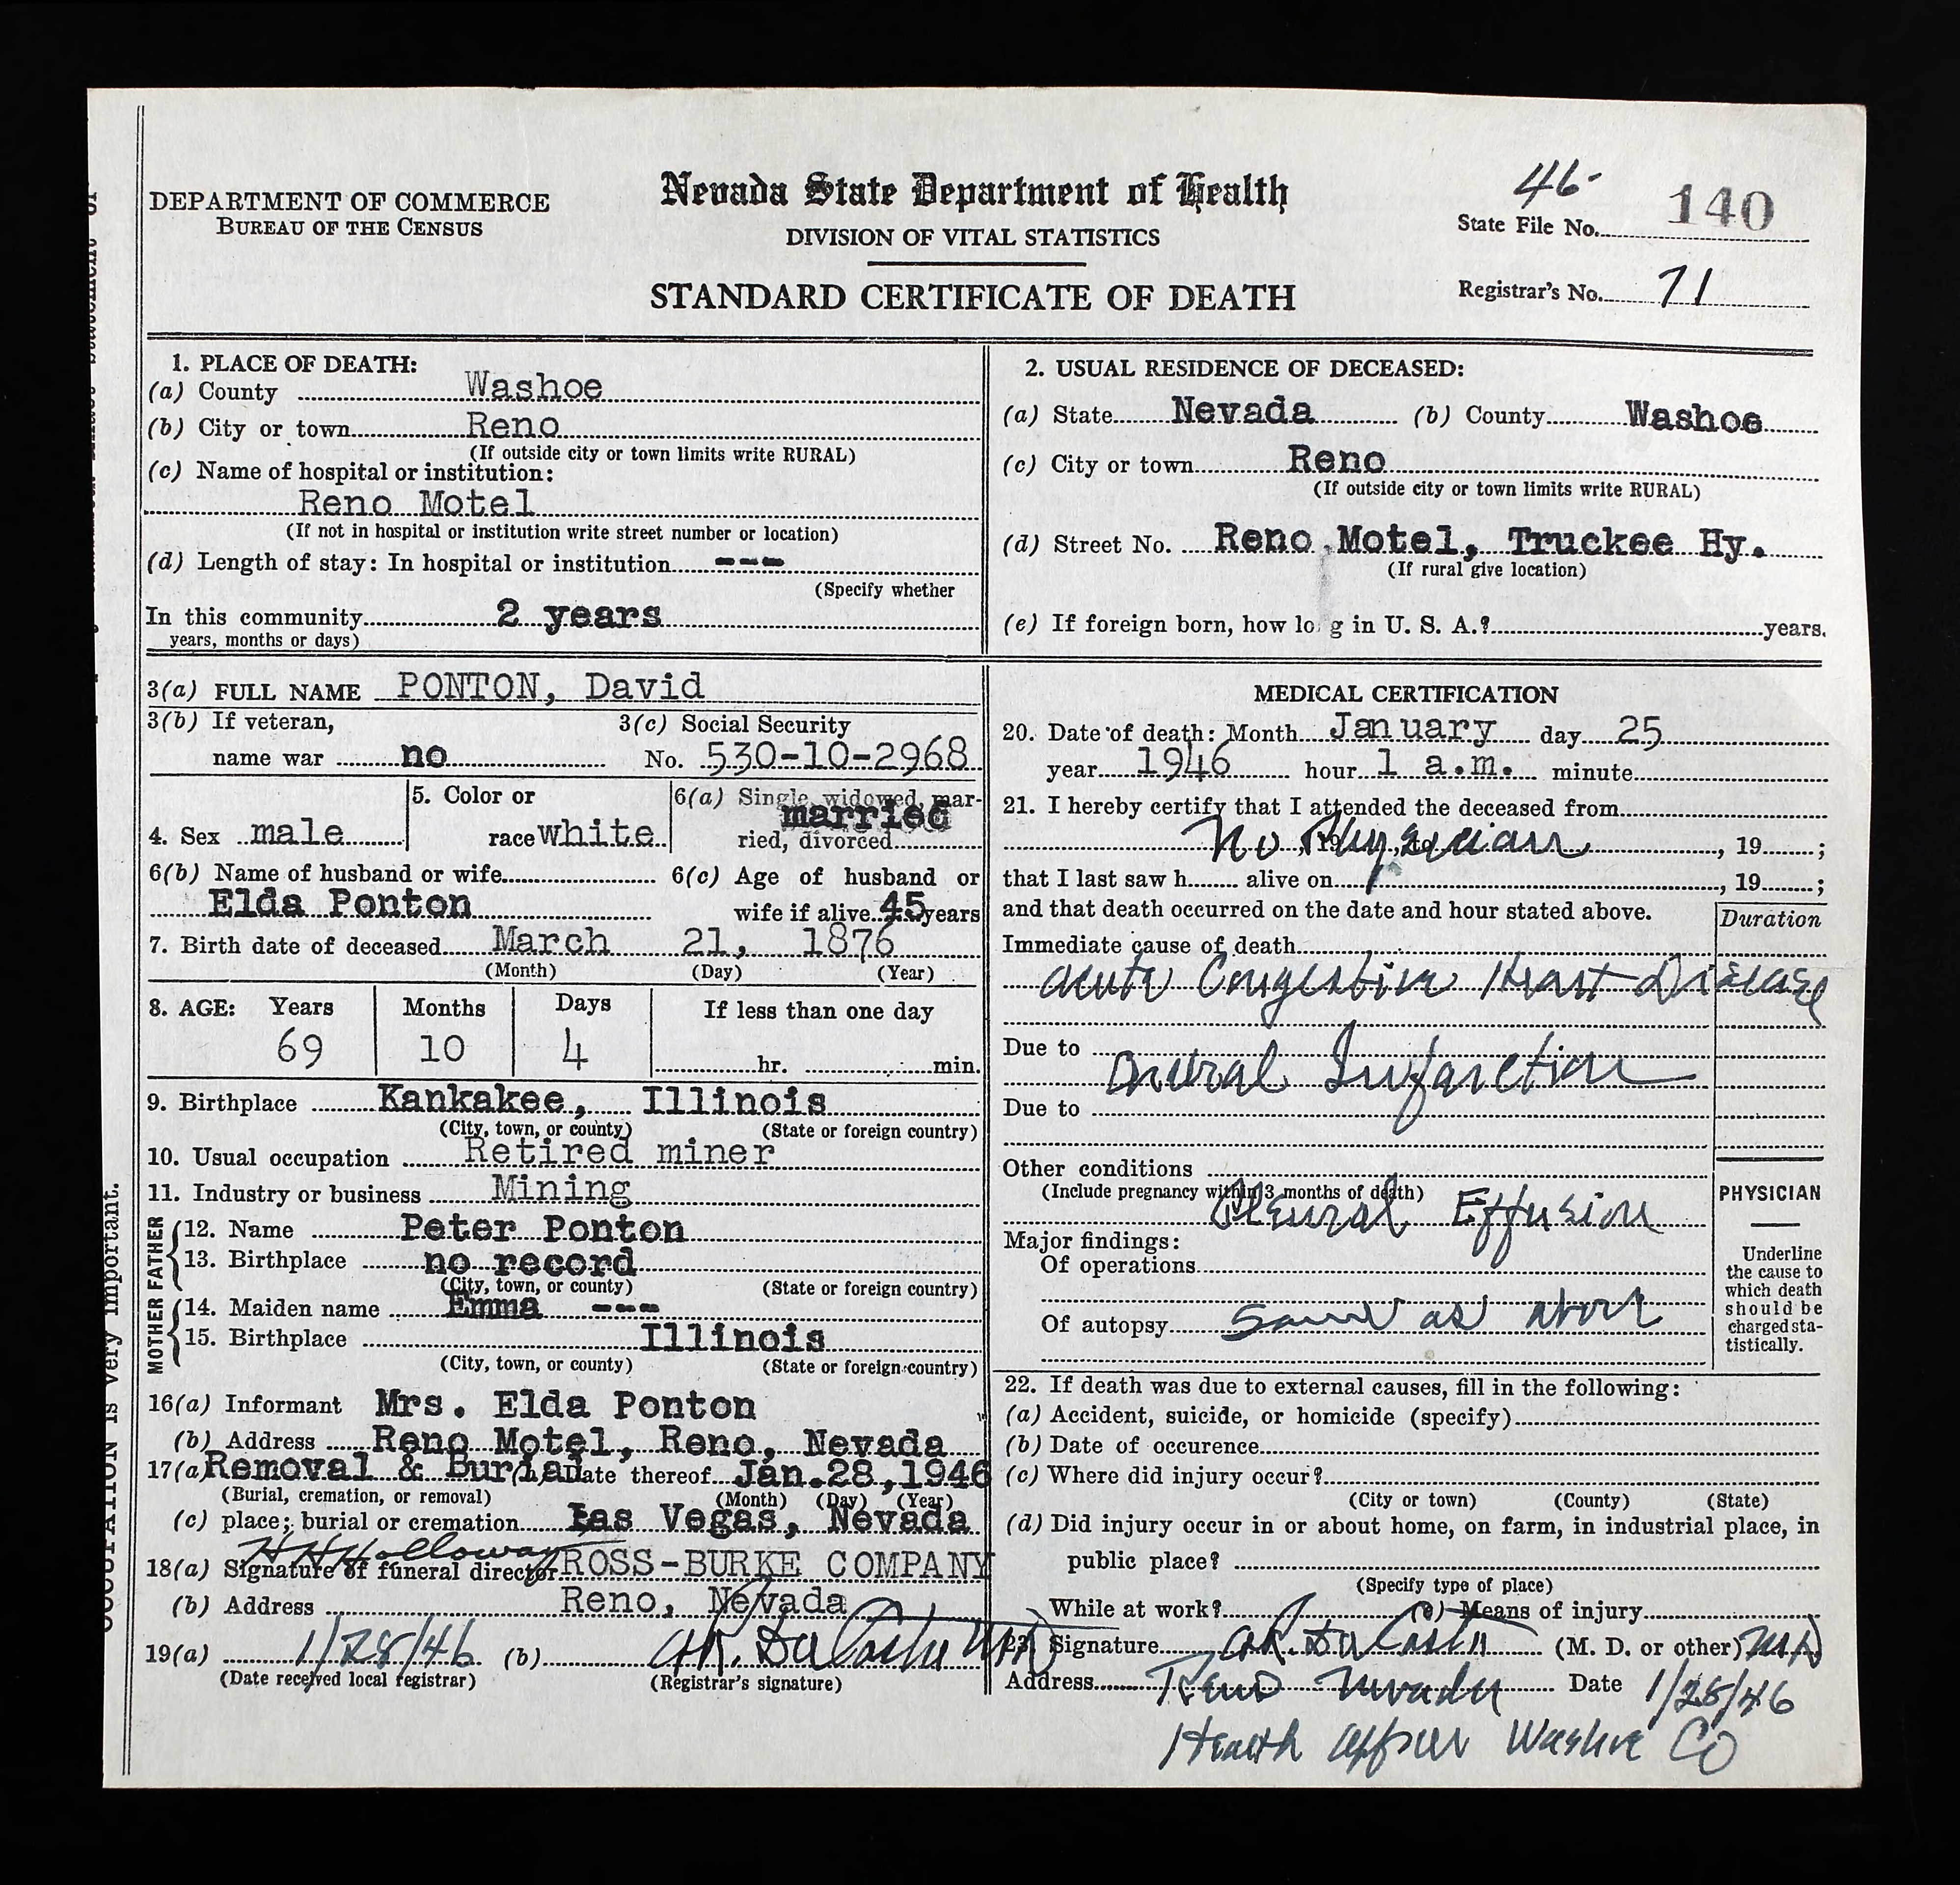 DEPARTMENT OF COMMERCE
BUREAU OF THE CENSUS
Nevada State Department of Health
DIVISION OF VITAL STATISTICS
STANDARD CERTIFICATE OF DEATH
46-
State File No. 140
Registrar's No. 71
1. PLACE OF DEATH:
(a) County Washoe
(b) City or town Reno
(If outside city or town limits write RURAL)
(c) Name of hospital or institution:
Reno Motel
(If not in hospital or institution write street number or location)
(d) Length of stay: In hospital or institution ---
(Specify whether
In this community 2 years
years, months or days)
2. USUAL RESIDENCE OF DECEASED:
(a) State Nevada (b) County Washoe
(c) City or town Reno
(If outside city or town limits write RURAL)
(d) Street No. Reno Motel, Truckee Hy.
(If rural give location)
(e) If foreign born, how lo g in U. S. A.? years.
3(a) FULL NAME PONTON, David
3(b) If veteran, 3(c) Social Security
name war no No. 530-10-2968
4. Sex male
5. Color or
race white
6(a) Single, widowed, mar-
married
ried, divorced
6(b) Name of husband or wife 6(c) Age of husband or
Elda Ponton wife if alive 45 years
7. Birth date of deceased March 21, 1876
(Month) (Day) (Year)
8. AGE: Years Months Days If less than one day
69 10 4 hr. min.
9. Birthplace Kankakee, Illinois
(City, town, or county) (State or foreign country)
10. Usual occupation Retired miner
11. Industry or business Mining
FATHER
12. Name Peter Ponton
13. Birthplace no record
(City, town, or county) (State or foreign country)
MOTHER
14. Maiden name Emma ---
15. Birthplace Illinois
(City, town, or county) (State or foreign country)
16(a) Informant Mrs. Elda Ponton
(b) Address Reno Motel, Reno, Nevada
17(a) Removal & Burial (b) Date thereof Jan.28,1946
(Burial, cremation, or removal) (Month) (Day) (Year)
(c) place; burial or cremation Las Vegas, Nevada
H H Holloway
18(a) Signature of funeral director ROSS-BURKE COMPANY
(b) Address Reno, Nevada
19(a) 1/28/46 (b) A.R. Da Costa MD
(Date received local registrar) (Registrar's signature)
MEDICAL CERTIFICATION
20. Date of death: Month January day 25
year 1946 hour 1 a.m. minute
21. I hereby certify that I attended the deceased from
No Physician, 19 ;
that I last saw h alive on , 19 ;
and that death occurred on the date and hour stated above.
Duration
Immediate cause of death
Acute Congestive Heart Disease
Due to
Infarction
Due to
Other conditions
(Include pregnancy within 3 months of death)
Pleural Effusion
Major findings:
Of operations
Of autopsy Same as above
PHYSICIAN
Underline
the cause to
which death
should be
charged sta-
tistically.
22. If death was due to external causes, fill in the following:
(a) Accident, suicide, or homicide (specify)
(b) Date of occurence
(c) Where did injury occur?
(City or town) (County) (State)
(d) Did injury occur in or about home, on farm, in industrial place, in
public place?
(Specify type of place)
While at work? (e) Means of injury
23. Signature A.R. Da Costa (M. D. or other) MD
Address Reno Nevada Date 1/28/46
Health Officer Washoe Co
OCCUPATION is very important.